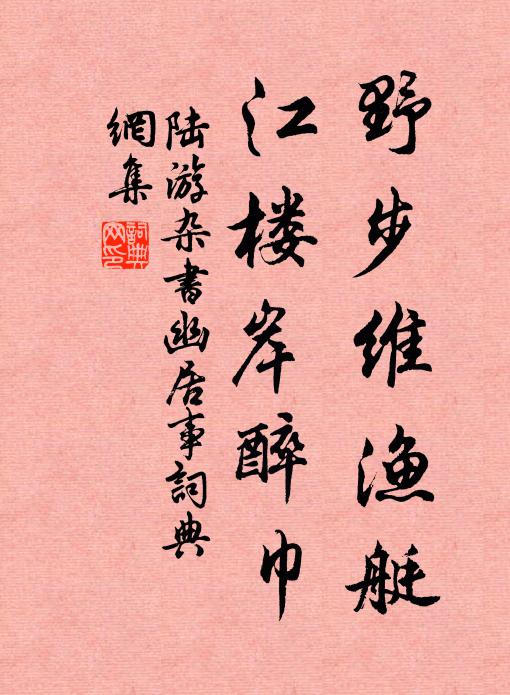 野步维渔艇
江楼岸醉巾
陆游杂书幽居事词典
網集
詞典
网印